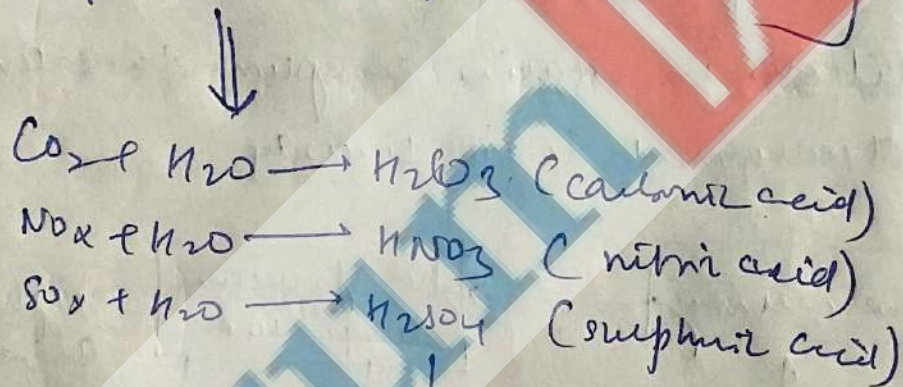 CO2 + H2O → H2CO3 (carbonic acid)
NOx + H2O → HNO3 (nitric acid)
SOx + H2O → H2SO4 (sulphuric acid)